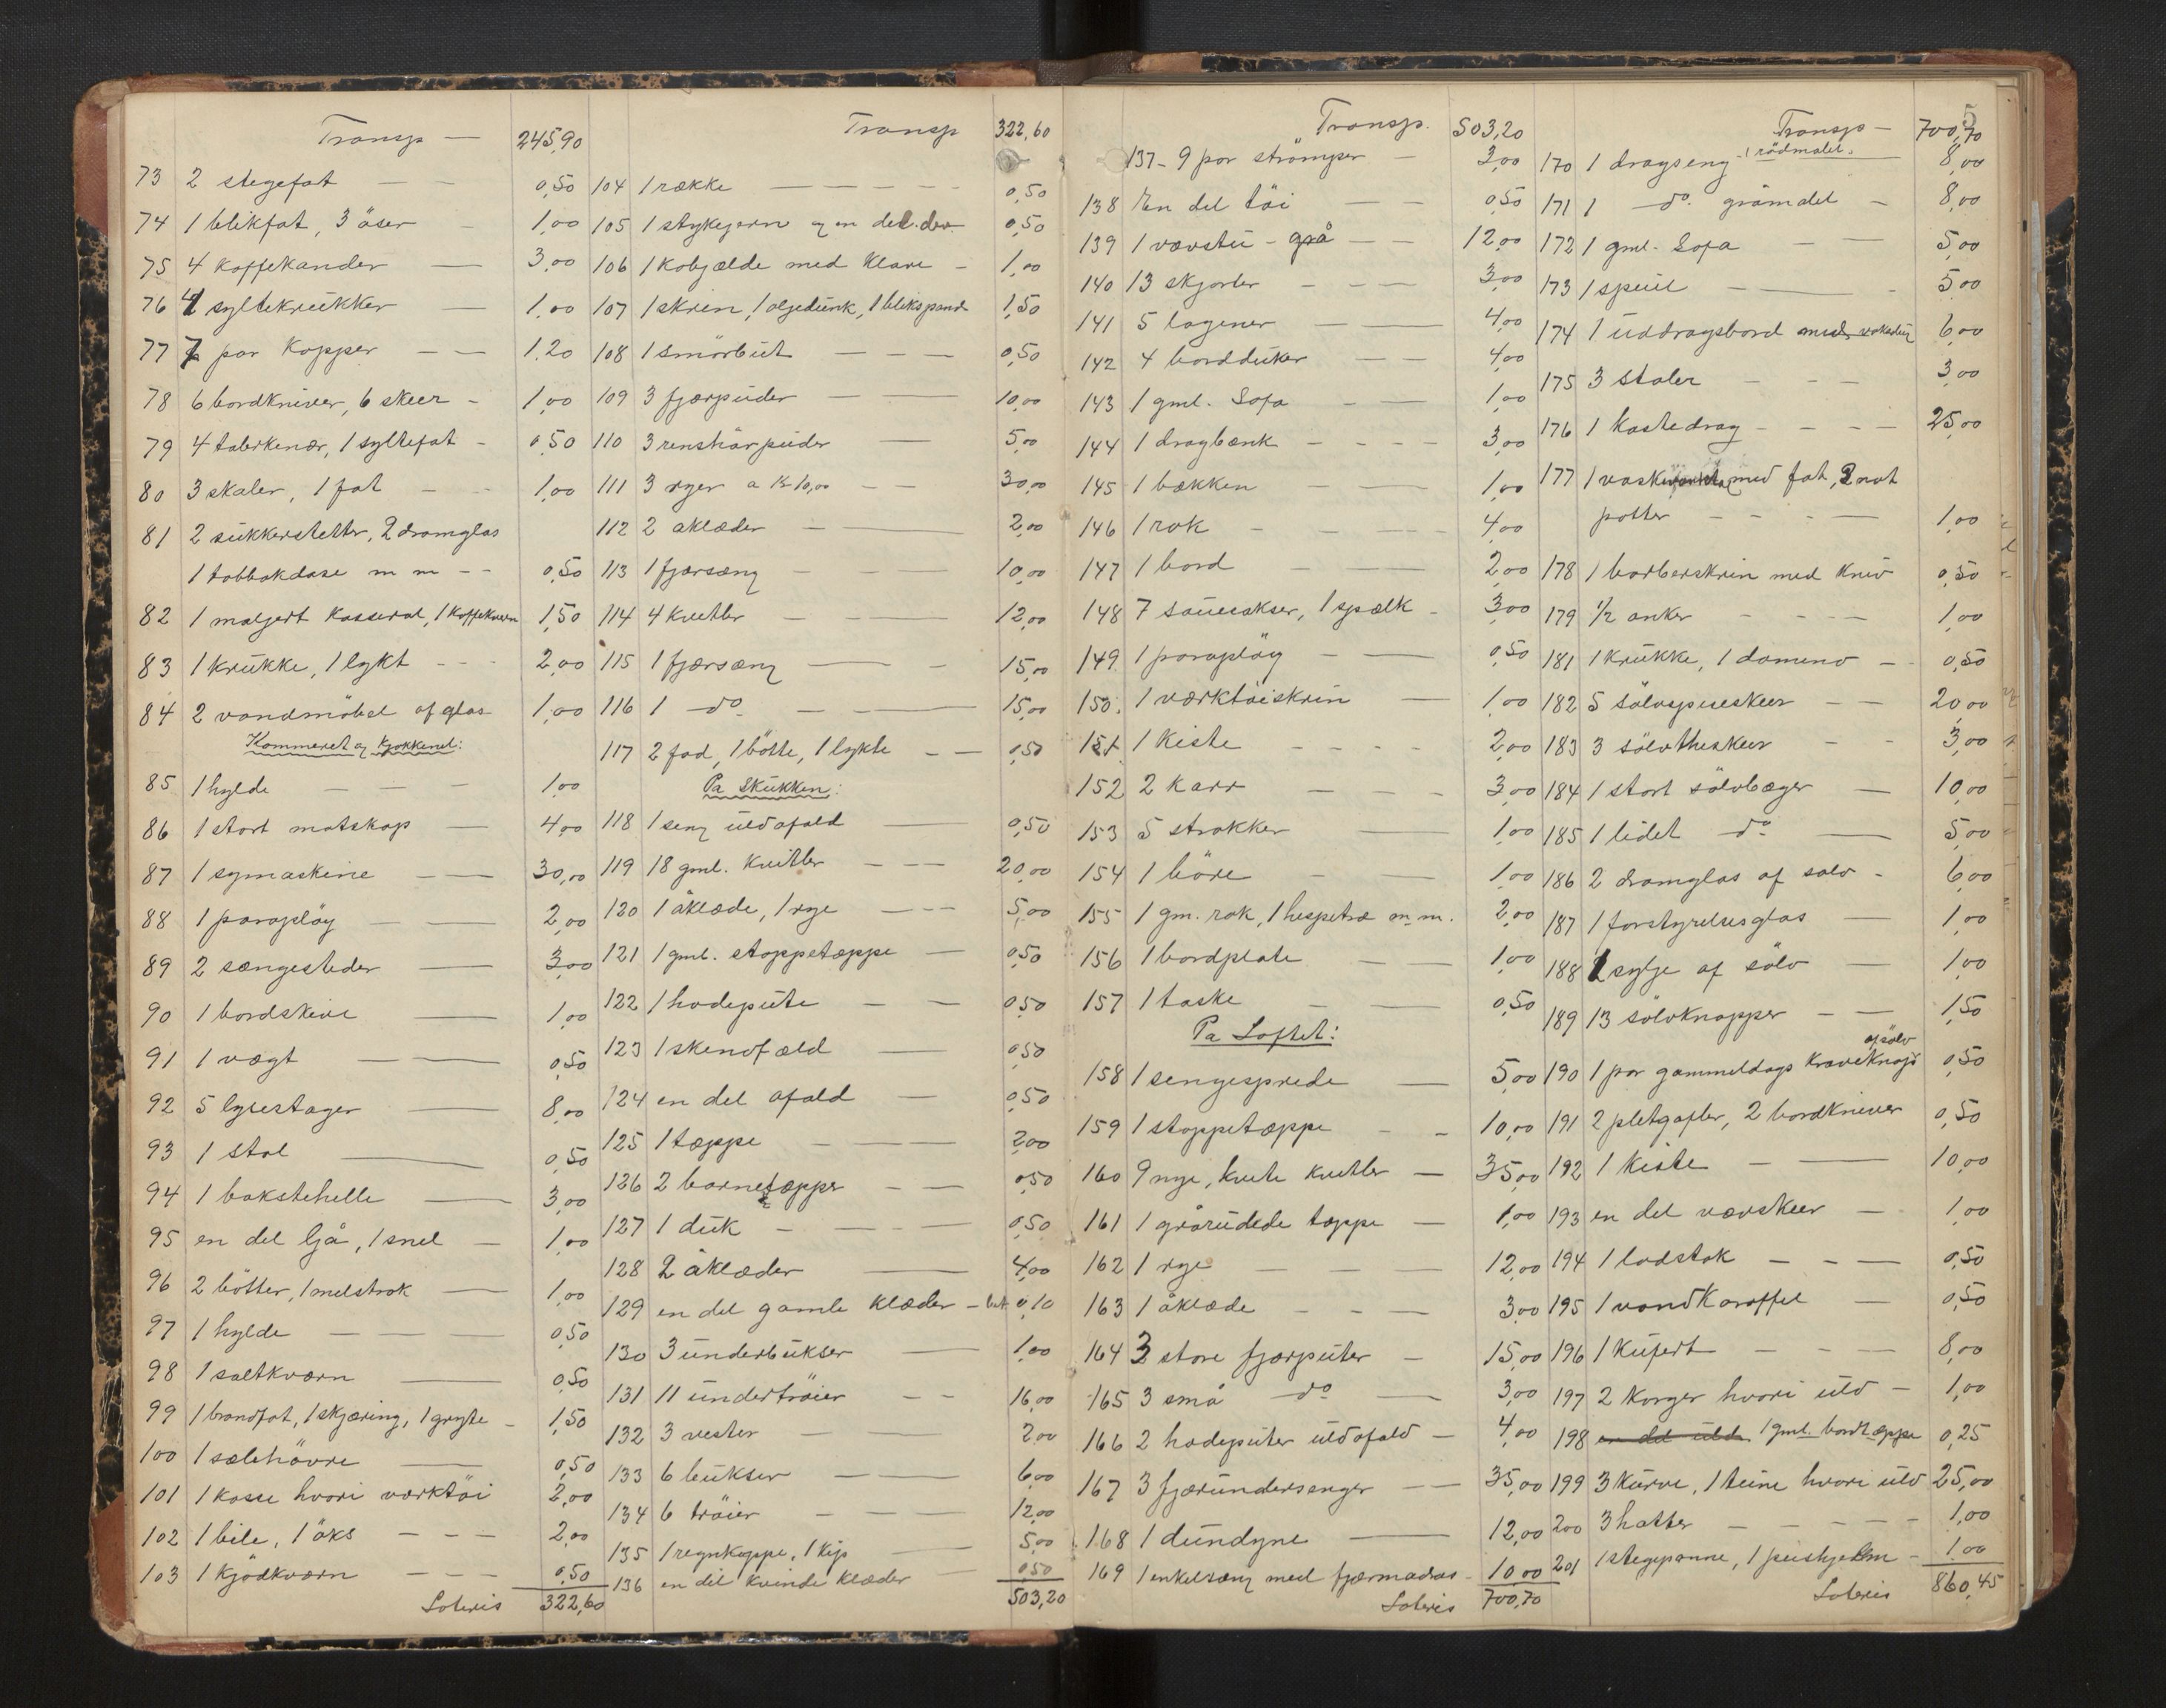 Transp — 245,90
73 2 stegefat — — 0,50
74 1 blikfat, 3 öser — 1,00
75 4 kaffekander — 3,00
76 4 syltekrukker — 1,00
77 7 par Kopper — — 1.20
78 6 bordkniver, 6 skeer - 1,00
79 4 talerkenær, 1 syltefat - 0,50
80 3 skaler, 1 fat — - 1,00
81 2 sukkerstetter, 2 dramglas
1 tobbakdase m m - - 0,50
82 1 maljert Kasserol, 1 Kaffekvern 1,50
83 1 krukke, 1 lykt - - - 2,00
84 2 vandmöbel af glas 1,00
Kammeret og kjøkkenet:
85 1 hylde — — - 1,00
86 1 stort matskap — 4,00
87 1 symaskine — — 30,00
88 1 paraplöy — — 2,00
89 2 sengesteder — 3,00
90 1 bordskive — 1,00
91 1 vægt — — 0,50
92 5 lysestager — 8,00
93 1 stol — 0,50
94 1 bakstehelle — 3,00
95 en del ljå, 1 snel — 1,00
96 2 bötter, 1 melstrok — 1,00
97 1 hylde — — — 0,50
98 1 saltkværn — 0,50
99 1 brandfat, 1 skjæring, 1 gryte - 1,50
100 1 salehövre — 0,50
101 1 kasse hvori værktöi 2,00
102 1 bile, 1 öks — - — 2,00
103 1 Kjödkværn — — - 0,50
Lateris 322,60
Transp 322,60
104 1 række — — — — - 0,50
105 1 stykejern og en del. 0,50
106 1 kobjælde med Klave - 1,00
107 1 skrin, 1 oljedunk, 1 blikspand 1,50
108 1 smörbut — — — 0,50
109 3 fjærpuder — — 10,00
110 3 renshårpuder — 5,00
111 3 ryer a Kr 10,00 — — 30,00
112 2 aklæder — — 2,00
113 1 fjærsæng — — 10,00
114 4 kvitler — — 12,00
115 1 fjærsæng — - 15,00
116 1 — do — — 15,00
117 2 fad, 1 bötte, 1 lykte - — 0,50
Pa Skükken:
118 1 seng uldafald — 0,50
119 18 gml. Kvitler — — 20,00
120 1 åklæde, 1 rye — - - 5,00
121 1 gml. stoppetæppe — 0,50
122 1 hodepute — — 0,50
123 1 skindfæld — 0,50
124 en del afald — 0,50
125 1 tæppe — — — 2,00
126 2 barnetæpper — — 0,50
127 1 duk — — - — 0,50
128 2 åklæder — 4,00
129 en del gamle klæder — 0,10
130 3 underbukser — 1,00
131 11 undertröier — — 16,00
132 3 vester — — 2,00
133 6 bukser — — 6,00
134 6 tröier — — — 12,00
135 1 regnkappe, 1 Kip — 5,00
136 en del kvinde klæder 0,50
503,20
Transp. 503,20
137 - 9 par strömper — 3,00
138 En del töi — — 0,50
139 1 vævstü - grå — — 12,00
140 13 skjorter - — — 3,00
141 5 lagener — — 4,00
142 4 bordduker — — 4,00
143 1 gml. Sofa — — 1,00
144 1 dragbænk - — - — 3,00
145 1 bækken — — 1,00
146 1 rok - — - — 4,00
147 1 bord — — 2,00
148 7 sauesakser, 1 spælk - 3,00
149. 1 paraplöy — — 0,50
150. 1 værktöiskrin — 1,00
151 1 Kiste - - - - 2,00
152 2 karr — — - 3,00
153 5 strokker — 1,00
154 1 böre — — 1,00
155 1 gm. rok, 1 hespetræ m.m. 2,00
156 1 bordplate — — 1,00
157 1 taske — — 0,50
Pa Loftet:
158 1 sengesprede — 5,00
159 1 stoppetæppe - - 10,00
160 9 nye, kvite kvitler — 35,00
161 1 gråruded̶e tæppe — 1,00
162 1 rye — — — 12,00
163 1 åklæde — - — 3,00
164 3 store fjærputer — 15,00
165 3 små do — 3,00
166 2 hodeputer uldafald — 4,00
167 3 fjærundersenger — — 35,00
168 1 dundyne — 12,00
169 1 enkelsæng med fjærmadras - 10,00
Lateris 700,70
5
Transp — 700,70
170 1 dragseng - rödmalet. 8,00
171 1 — do. gråmalet — 8,00
172 1 gml. Sofa — — 5,00
173 1 speil — — - 5,00
174 1 uddragsbord med 6,00
175 3 stoler — - — 3,00
176 1 Kastedrag - — - — 25,00
177 1 vask med fat, 2 nat
potter - — - — 1,00
178 1 barberskrin med Kniv 0,50
179 1/2 anker - - - — 1,00
181 1 krukke, 1 domino — - 0,50
182 5 sölvspiseskeer — — 20,00
183 3 sölvtheskeer — - 3,00
184 1 stort sölvbæger — 10,00
185 1 lidet do — 5,00
186 2 dramglas af sölv - 6,00
187 1 forstyrelsesglas — 1,00
188 1 sylje af sölv — 1,00
189 13 sölvknapper — — 1,50
190 1 par gammeldags Kraveknap af sölv 0,50
191 2 pletgafler, 2 bordkniver 0,50
192 1 kiste — — 10,00
193 en del vævskeer — 1,00
194 1 ladstok — - — 0,50
195 1 vandKaraffel — 0,50
196 1 Kufert — - — 8,00
197 2 Korger hvori uld — 1,00
198 en del uld 1 gml. bordtæppe 0,25
199 3 kurve, 1 teine hvori uld 25,00
200 3 hatter — - - - - 1,00
201 1 stegepanne, 1 peishjelm - 1.00
Lateris 860,45